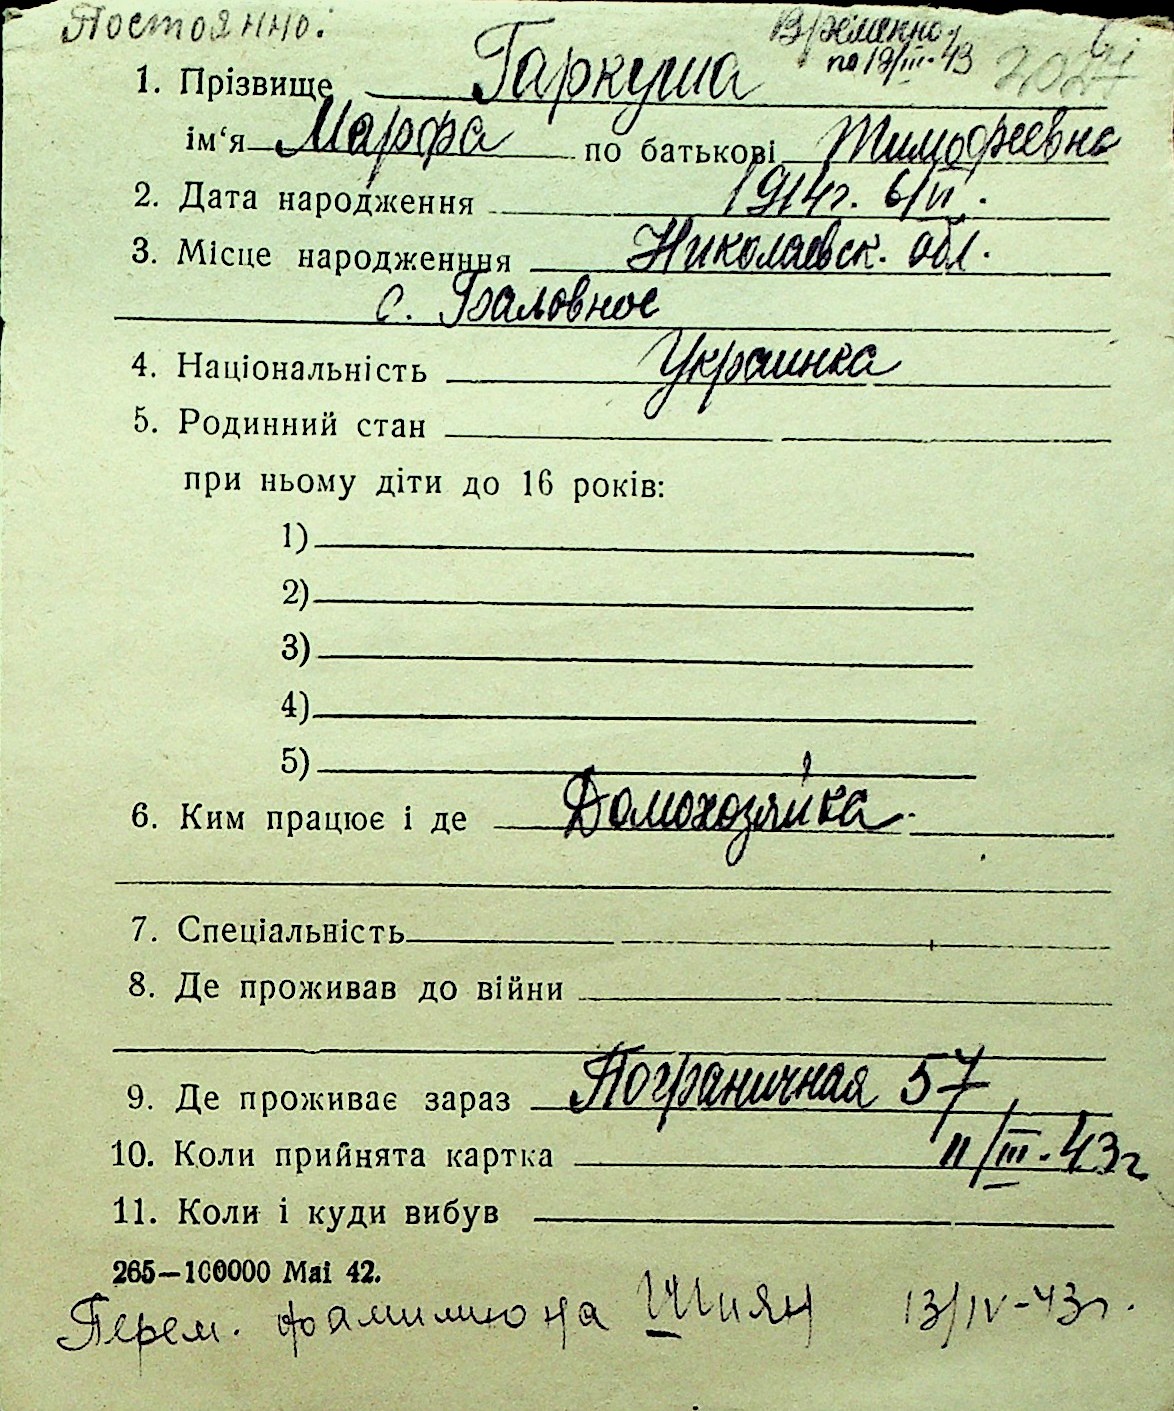 Постоянно: Временно
по 18/III-43 2027
1. Прізвище Гаркуша
ім‘я Марфа по батькові Тимофеевна
2. Дата народження 1914г. 6/VI.
3. Місце народженння Николаевск. обл.
с. Баловное
4. Національність Украинка
5. Родинний стан
при ньому діти до 16 років:
1)
2)
3)
4)
5)
6. Ким працює і де Домохозяйка.
7. Спеціальність
8. Де проживав до війни
9. Де проживає зараз Пограничная 57
10. Коли прийнята картка 11/III-43г
11. Коли і куди вибув
265—100000 Mai 42.
Перем. фамилию на Шиян 13/IV-43г.